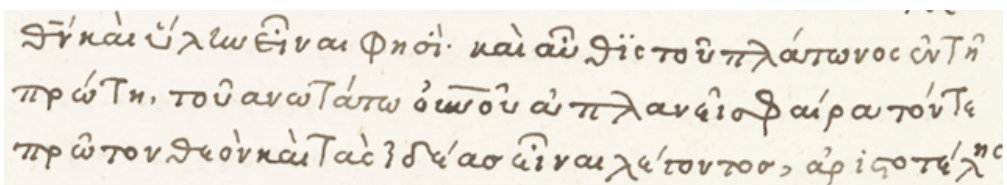 θὴν καὶ ὕλην εἶναι φησὶ· καὶ αὖθις τοῦ πλάτωνος ἐν τῆ
πρώτη, τοῦ ανωτάτω οὐνοῦ ἀπλανεῖ σφαίρα τόν τε
πρῶτον θεὸν καὶ τὰς ἰδέας εἶναι λέγοντος, ἀριστοτέλης